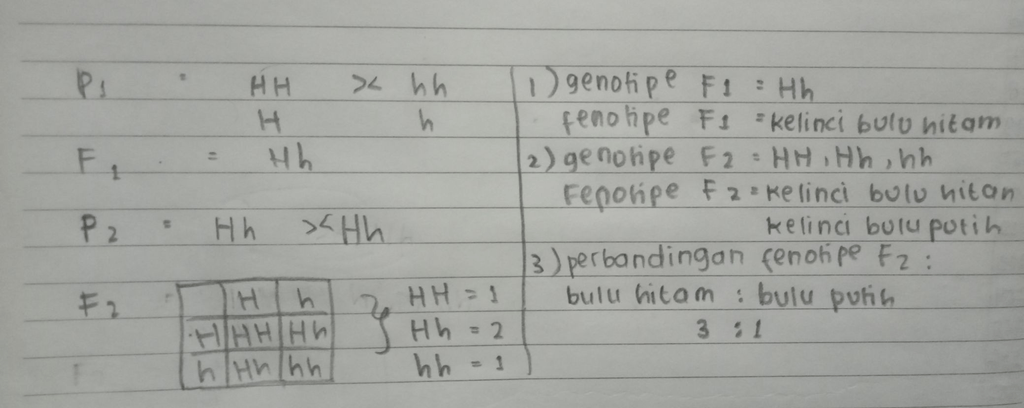 P1 : HH >< hh
H h
F1 = Hh
P2 = Hh >< Hh
F2 = H h } HH = 1
H HH Hh Hh = 2
h Hh hh hh = 1
1) genotipe F1 = Hh
fenotipe F1 = kelinci bulu hitam
2) genotipe F2 = HH, Hh, hh
Fenotipe F2 = kelinci bulu hitan
kelinci bulu putih
3) perbandingan fenotipe F2 :
bulu hitam : bulu putih
3 : 1